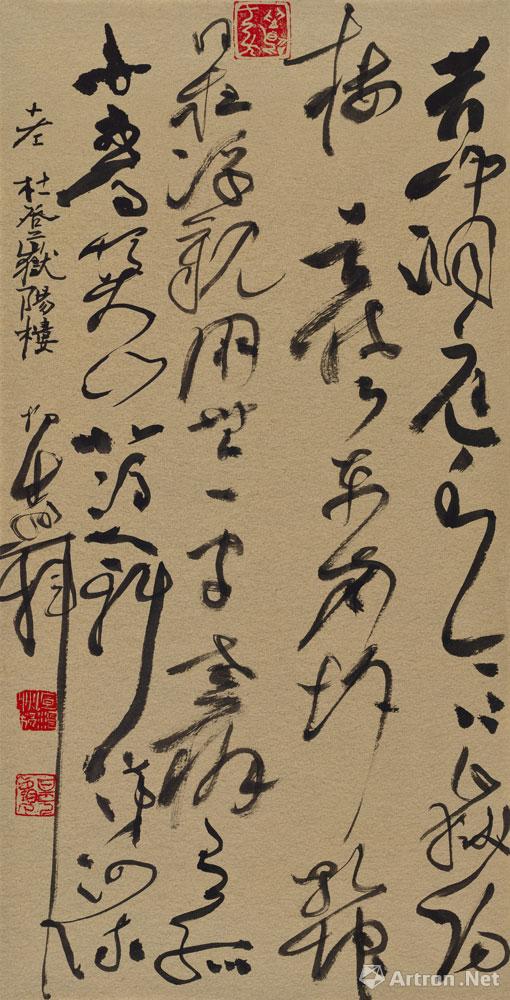 昔聞洞庭水今上嶽陽
樓吳楚東南坼乾坤
日夜浮親朋無一字老病有孤
舟戎馬關山北憑軒涕泗流
老杜登嶽陽樓
Artron.Net